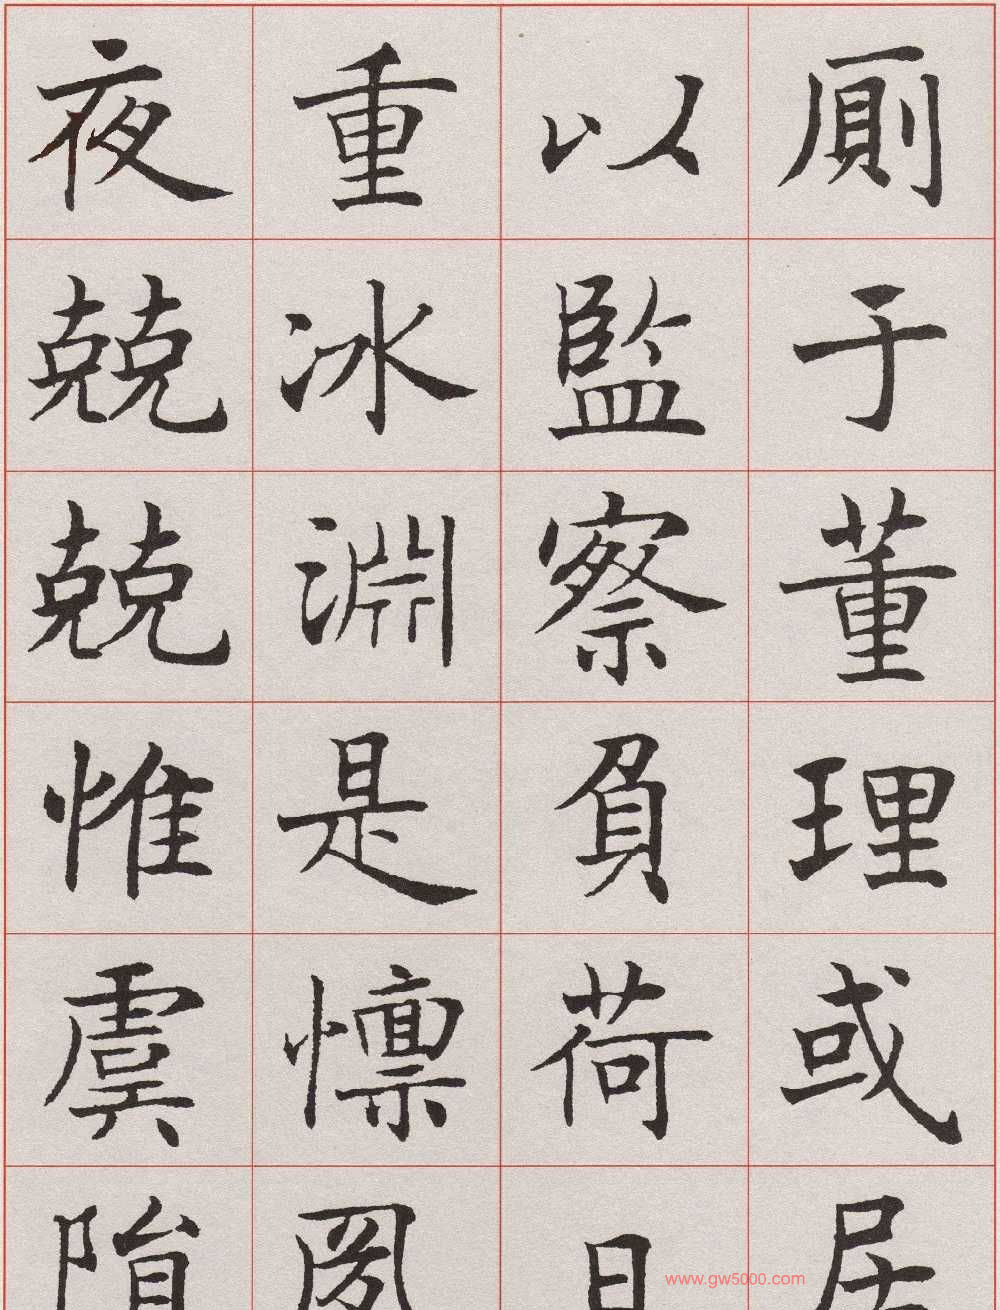 厠于董理或居
以監察負荷日
重冰淵是懍夙
夜兢兢惟虞隕
www.gw5000.com